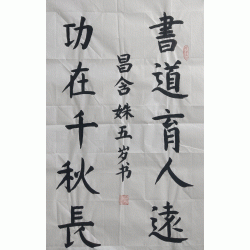 書道育人遠
功在千秋長
昌含姝五岁书